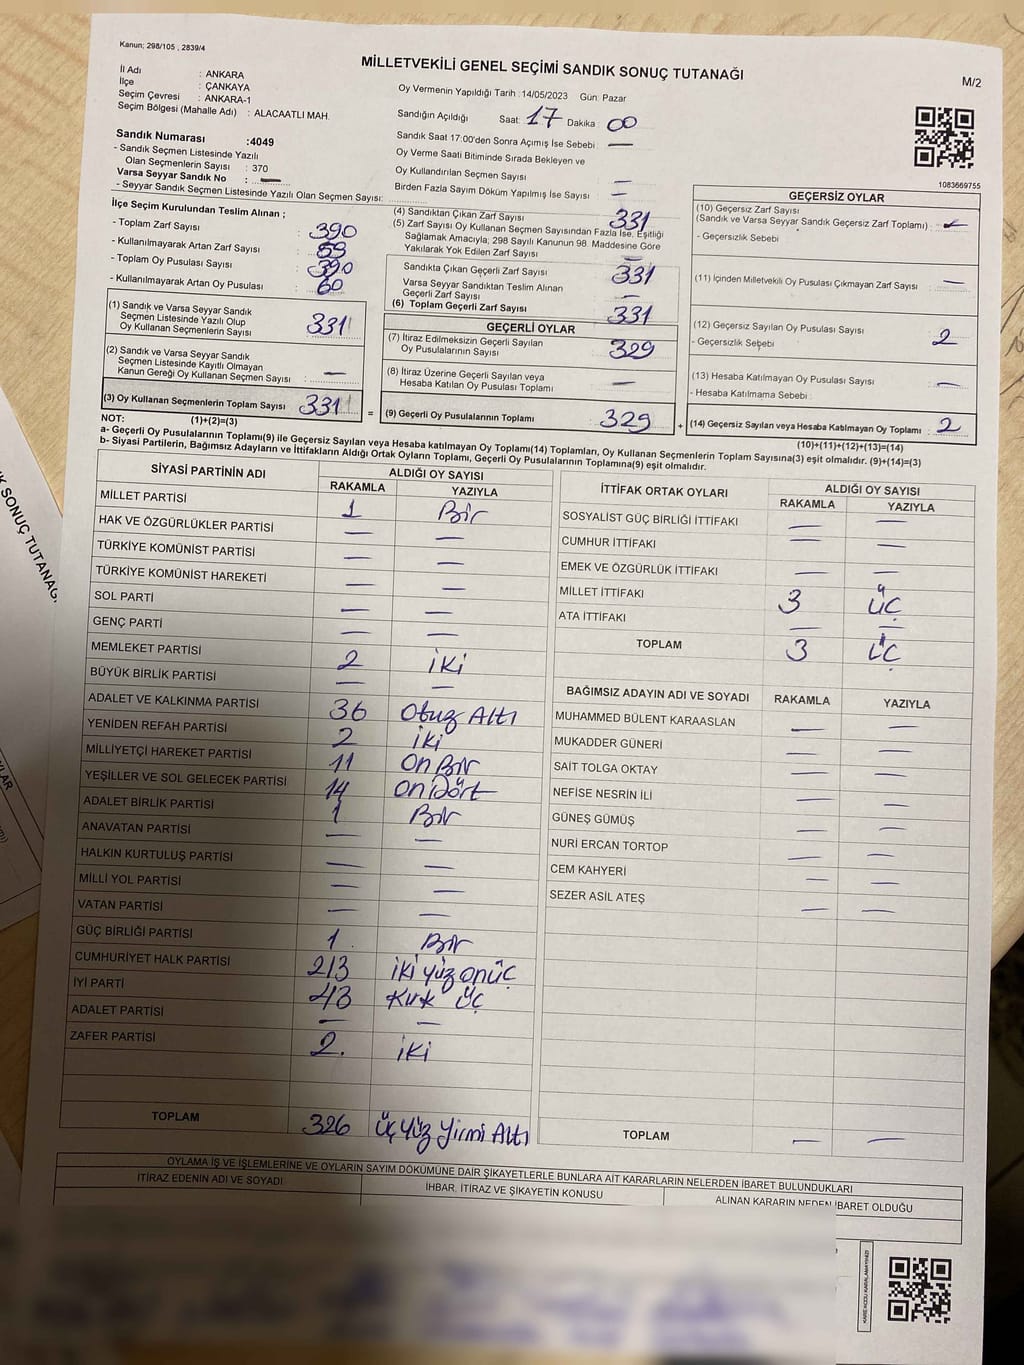 Kanun; 298/105 , 2839/4
MİLLETVEKİLİ GENEL SEÇİMİ SANDIK SONUÇ TUTANAĞI
M/2
İl Adı : ANKARA
İlçe : ÇANKAYA
Seçim Çevresi : ANKARA-1
Seçim Bölgesi (Mahalle Adı) : ALACAATLI MAH.
Oy Vermenin Yapıldığı Tarih :14/05/2023 Gün: Pazar
Sandığın Açıldığı Saat: 17 Dakika : 00
Sandık Saat 17:00'den Sonra Açımış İse Sebebi : —
Oy Verme Saati Bitiminde Sırada Bekleyen ve
Oy Kullandırılan Seçmen Sayısı : —
Birden Fazla Sayım Döküm Yapılmış İse Sayısı : —
Sandık Numarası :4049
- Sandık Seçmen Listesinde Yazılı
Olan Seçmenlerin Sayısı : 370
Varsa Seyyar Sandık No : —
- Seyyar Sandık Seçmen Listesinde Yazılı Olan Seçmen Sayısı:
İlçe Seçim Kurulundan Teslim Alınan ;
- Toplam Zarf Sayısı : 390
- Kullanılmayarak Artan Zarf Sayısı : 59
- Toplam Oy Pusulası Sayısı : 390
- Kullanılmayarak Artan Oy Pusulası : 60
(1) Sandık ve Varsa Seyyar Sandık
Seçmen Listesinde Yazılı Olup
Oy Kullanan Seçmenlerin Sayısı : 331
(2) Sandık ve Varsa Seyyar Sandık
Seçmen Listesinde Kayıtlı Olmayan
Kanun Gereği Oy Kullanan Seçmen Sayısı : —
(3) Oy Kullanan Seçmenlerin Toplam Sayısı : 331
(1)+(2)=(3)
(4) Sandıktan Çıkan Zarf Sayısı : 331
(5) Zarf Sayısı Oy Kullanan Seçmen Sayısından Fazla İse, Eşitliği
Sağlamak Amacıyla; 298 Sayılı Kanunun 98. Maddesine Göre
Yakılarak Yok Edilen Zarf Sayısı : —
Sandıkta Çıkan Geçerli Zarf Sayısı : 331
Varsa Seyyar Sandıktan Teslim Alınan
Geçerli Zarf Sayısı : —
(6) Toplam Geçerli Zarf Sayısı : 331
GEÇERLİ OYLAR
(7) İtiraz Edilmeksizin Geçerli Sayılan
Oy Pusulalarının Sayısı : 329
(8) İtiraz Üzerine Geçerli Sayılan veya
Hesaba Katılan Oy Pusulası Toplamı : —
= (9) Geçerli Oy Pusulalarının Toplamı : 329 +
1083669755
GEÇERSİZ OYLAR
(10) Geçersiz Zarf Sayısı
(Sandık ve Varsa Seyyar Sandık Geçersiz Zarf Toplamı) : —
- Geçersizlik Sebebi :
(11) İçinden Milletvekili Oy Pusulası Çıkmayan Zarf Sayısı : —
(12) Geçersiz Sayılan Oy Pusulası Sayısı : 2
- Geçersizlik Sebebi :
(13) Hesaba Katılmayan Oy Pusulası Sayısı : —
- Hesaba Katılmama Sebebi :
(14) Geçersiz Sayılan veya Hesaba Katılmayan Oy Toplamı : 2
(10)+(11)+(12)+(13)=(14)
NOT:
a- Geçerli Oy Pusulalarının Toplamı(9) ile Geçersiz Sayılan veya Hesaba katılmayan Oy Toplamı(14) Toplamları, Oy Kullanan Seçmenlerin Toplam Sayısına(3) eşit olmalıdır. (9)+(14)=(3)
b- Siyasi Partilerin, Bağımsız Adayların ve İttifakların Aldığı Ortak Oyların Toplamı, Geçerli Oy Pusulalarının Toplamına(9) eşit olmalıdır.
SİYASİ PARTİNİN ADI ALDIĞI OY SAYISI
RAKAMLA YAZIYLA
MİLLET PARTİSİ 1 Bir
HAK VE ÖZGÜRLÜKLER PARTİSİ — —
TÜRKİYE KOMÜNİST PARTİSİ — —
TÜRKİYE KOMÜNİST HAREKETİ — —
SOL PARTİ — —
GENÇ PARTİ — —
MEMLEKET PARTİSİ 2 iki
BÜYÜK BİRLİK PARTİSİ — —
ADALET VE KALKINMA PARTİSİ 36 Otuz Altı
YENİDEN REFAH PARTİSİ 2 iki
MİLLİYETÇİ HAREKET PARTİSİ 11 On Bir
YEŞİLLER VE SOL GELECEK PARTİSİ 14 On Dört
ADALET BİRLİK PARTİSİ 1 Bir
ANAVATAN PARTİSİ — —
HALKIN KURTULUŞ PARTİSİ — —
MİLLİ YOL PARTİSİ — —
VATAN PARTİSİ — —
GÜÇ BİRLİĞİ PARTİSİ 1. Bir
CUMHURİYET HALK PARTİSİ 213 iki yüz onüç
İYİ PARTİ 43 Kırk üç
ADALET PARTİSİ — —
ZAFER PARTİSİ 2. iki
TOPLAM 326 üç yüz yirmi Altı
İTTİFAK ORTAK OYLARI ALDIĞI OY SAYISI
RAKAMLA YAZIYLA
SOSYALİST GÜÇ BİRLİĞİ İTTİFAKI — —
CUMHUR İTTİFAKI — —
EMEK VE ÖZGÜRLÜK İTTİFAKI — —
MİLLET İTTİFAKI 3 üç
ATA İTTİFAKI — —
TOPLAM 3 üç
BAĞIMSIZ ADAYIN ADI VE SOYADI RAKAMLA YAZIYLA
MUHAMMED BÜLENT KARAASLAN — —
MUKADDER GÜNERİ — —
SAİT TOLGA OKTAY — —
NEFİSE NESRİN İLİ — —
GÜNEŞ GÜMÜŞ — —
NURİ ERCAN TORTOP — —
CEM KAHYERİ — —
SEZER ASİL ATEŞ — —
TOPLAM — —
OYLAMA İŞ VE İŞLEMLERİNE VE OYLARIN SAYIM DÖKÜMÜNE DAİR ŞİKAYETLERLE BUNLARA AİT KARARLARIN NELERDEN İBARET BULUNDUKLARI
İTİRAZ EDENİN ADI VE SOYADI İHBAR, İTİRAZ VE ŞİKAYETİN KONUSU ALINAN KARARIN NEDEN İBARET OLDUĞU
KARE KODU KARALAMAYINIZ!
K SONUÇ TUTANAĞ